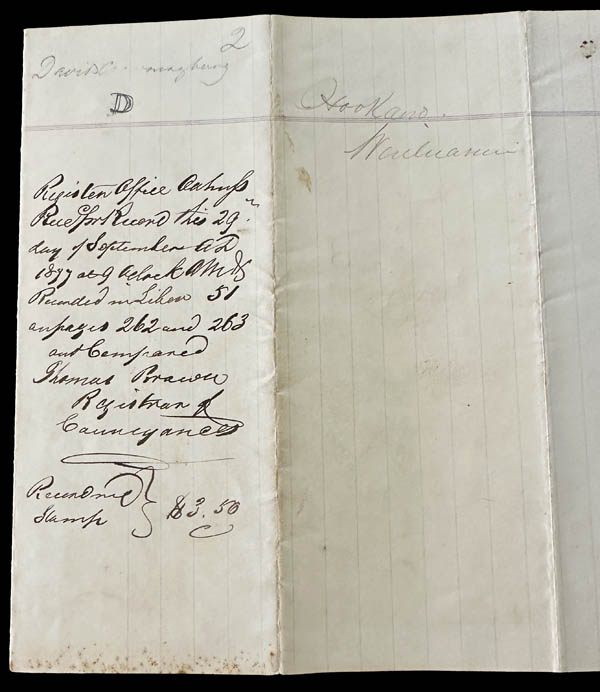 2
David
D
Register Office Oahu ss
Recd for Record this 29th
day of September AD
1877 at 9 Oclock AM &
Recorded in Liber 51
on pages 262 and 263
and Compared
Thomas Brown
Registrar of
Conveyances
Recording
Stamp } $3.50
Hookano